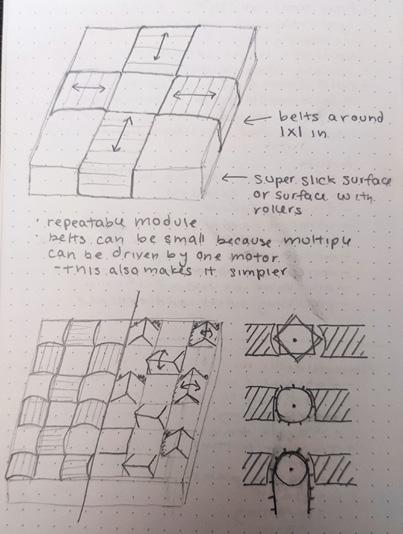 belts around
1x1 in.
super slick surface
or surface with
rollers
· repeatable module
belts can be small because multiple
can be driven by one motor.
- this also makes it simpler